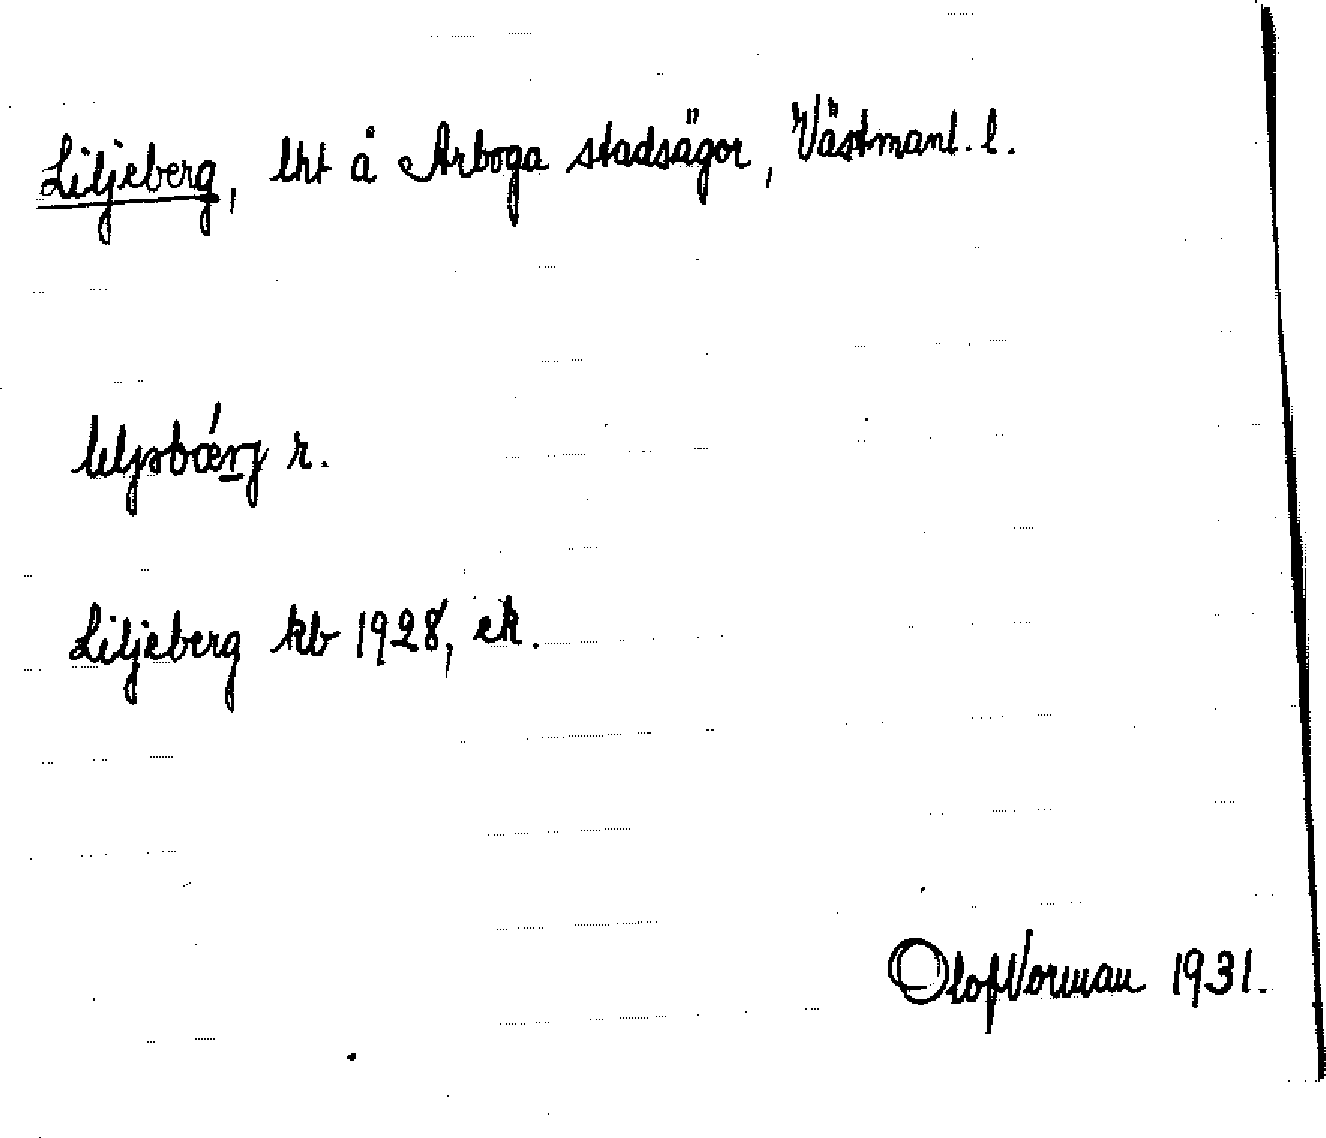 Liljeberg, lht å Arboga stadsägor, Västmanl. l.
r.
Liljeberg kb 1928, ek.
Olof Vorman 1931.